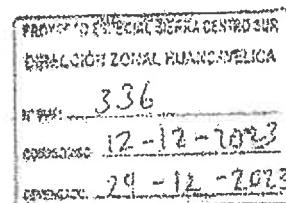 PROYECTO ESPECIAL SIERRA CENTRO SUR
DIRECCIÓN ZONAL HUANCAVELICA
336
12-12-2023
29-12-2023